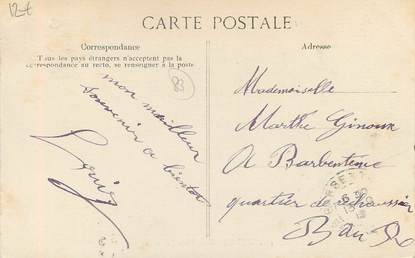 12-t
CARTE POSTALE
Correspondance
Tous les pays étrangers n'acceptent pas la
correspondance au recto, se renseigner à la poste
83
mon meilleur
souvenir a bientot
Louis
Adresse
Mademoiselle
Marthe Ginoux
A Barbentane
quartier de